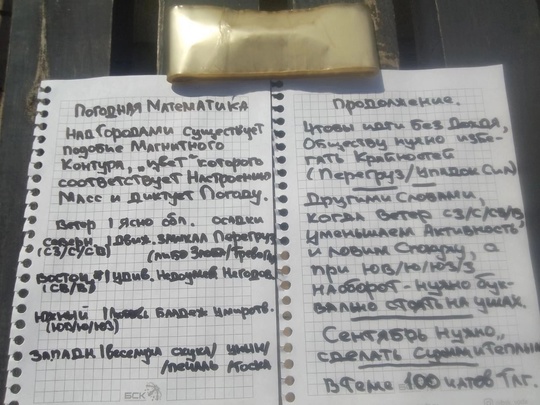 Погодная Математика
Над Городами существует
подобие Магнитного
Контура, "цвет" которого
соответствует Настроению
Масс и диктует Погоду.
Ветер | Ясно обл. осадки
Северн | Движ. Перегруз
(СЗ/С/СВ) (либо Злоба/Тревога)
Восточ | Удив. Недоумен Негодов
(СВ/В)
Южный | Умиротв.
(ЮВ/Ю/ЮЗ)
Западн | Веселуха скука/ уныни/
/печаль тоска
БСК
Продолжение.
Чтобы идти без Дождя,
Обществу нужно избе-
гать Крайностей
(Перегруз/Упадок Сил)
Другими Словами,
когда Ветер СЗ/С/СВ/В
уменьшаем Активность,
и ловим Скуку, а
при ЮВ/Ю/ЮЗ/З
наоборот - нужно бук-
вально стоять на ушах.
Сентябрь нужно
сделать Сухим и Теплым
В Теме 100 чатов Тлг.